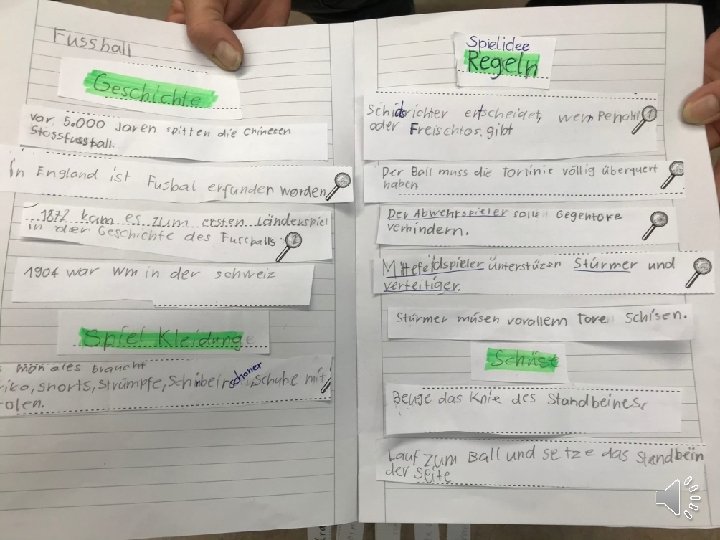 Fussball
Geschichte
vor 5.000 Jaren spilten die Chinesen
Stossfussball.
in England ist Fusbal erfunden worden
1872 kam es zum ersten Länderspiel
in der Geschichte des Fussballs.
1904 war wm in der schweiz
Spiel Kleidung
man ales braucht
Shorts, Strümpfe, Schinbeinschoner, Schuhe mit
olen.
Spielidee
Regeln
Schidsrichter entscheidet, wen Penahl
oder Freischtos gibt
Der Ball muss die Torlinie völlig überquert
haben
Der Abwehrspieler sollen Gegentore
verhindern.
Mittelfeldspieler unterstüzen Stürmer und
verteitiger.
Stürmer müsen vorallem Tore Schisen.
Schüse
Beuge das Knie des Standbeines.
Lauf zum Ball und setze das Standbein
der Seite